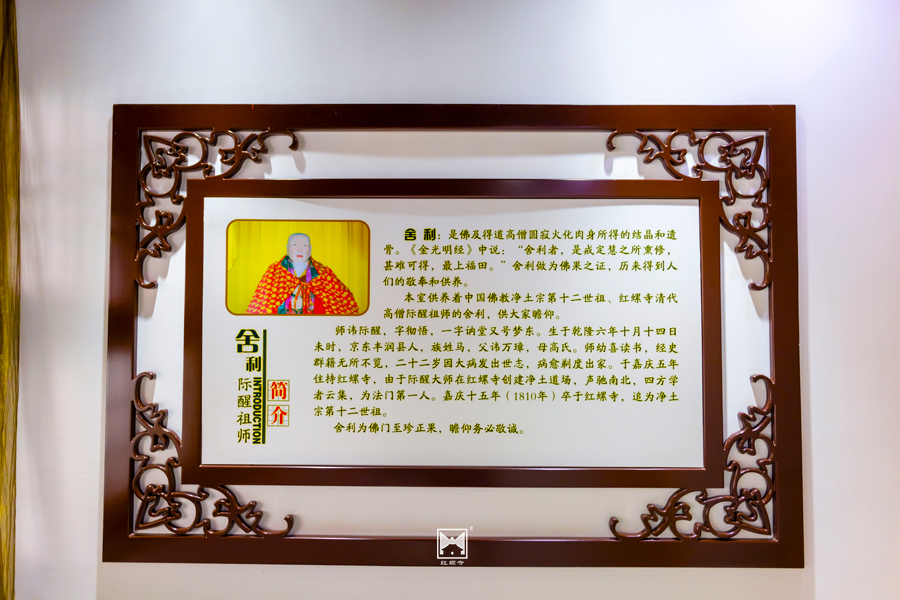 舍利：是佛及得道高僧圆寂火化肉身所得的结晶和遗
骨。《金光明经》中说：“舍利者，是戒定慧之所熏修，
甚难可得，最上福田。”舍利做为佛果之证，历来得到人
们的敬奉和供养。
本室供养着中国佛教净土宗第十二世祖、红螺寺清代
高僧际醒祖师的舍利，供大家瞻仰。
师讳际醒，字彻悟，一字讷堂又号梦东。生于乾隆六年十月十四日
未时，京东丰润县人，族姓马，父讳万璋，母高氏。师幼喜读书，经史
群籍无所不览，二十二岁因大病发出世志，病愈剃度出家。于嘉庆五年
住持红螺寺，由于际醒大师在红螺寺创建净土道场，声驰南北，四方学
者云集，为法门第一人。嘉庆十五年（1810年）卒于红螺寺，追为净土
宗第十二世祖。
舍利为佛门至珍正果，瞻仰务必敬诚。
舍利
际醒祖师
INTRODUCTION
简介
红螺寺